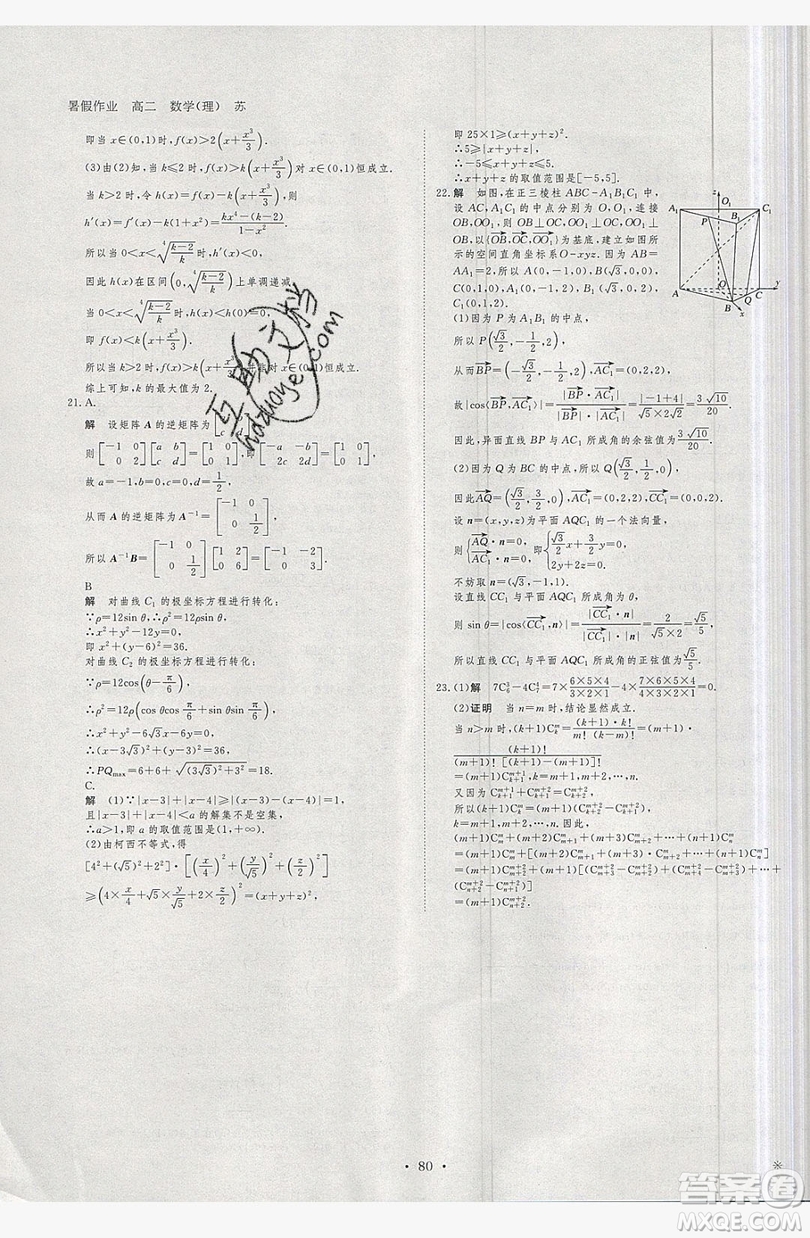 暑假作业 高二 数学(理) 苏
即当 x∈(0,1)时,f(x)>2(x+x³/3)
(3)由(2)知,当 k≤2 时,f(x)>k(x+x³/3)对 x∈(0,1)恒成立.
当 k>2 时,令 h(x)=f(x)-k(x+x³/3),则
h′(x)=f′(x)-k(1+x²)=(kx⁴-(k-2))/(1-x²).
所以当 0<x<⁴√((k-2)/k)时,h′(x)<0,
因此 h(x)在区间(0,⁴√((k-2)/k))上单调递减.
当 0<x<⁴√((k-2)/k)时,h(x)<h(0)=0,
即 f(x)<k(x+x³/3).
所以当 k>2 时,f(x)>k(x+x³/3)并非对 x∈(0,1)恒成立.
综上可知,k 的最大值为 2.
21. A.
解 设矩阵 A 的逆矩阵为
则[-1 0; 0 2][a b; c d]=[1 0; 0 1],即[-a -b; 2c 2d]=[1 0; 0 1],
故 a=-1,b=0,c=0,d=1/2,
从而 A 的逆矩阵为 A⁻¹=[-1 0; 0 1/2].
所以 A⁻¹B=[-1 0; 0 1/2][1 2; 0 6]=[-1 -2; 0 3].
B
解 对曲线 C₁的极坐标方程进行转化:
∵ρ=12sin θ,∴ρ²=12ρsin θ,
∴x²+y²-12y=0,
即 x²+(y-6)²=36.
对曲线 C₂的极坐标方程进行转化:
∵ρ=12cos(θ-π/6),
∴ρ²=12ρ(cos θcos π/6+sin θsin π/6),
∴x²+y²-6√3x-6y=0,
∴(x-3√3)²+(y-3)²=36,
∴PQmax=6+6+√((3√3)²+3²)=18.
C.
解 (1)∵|x-3|+|x-4|≥|(x-3)-(x-4)|=1,
且|x-3|+|x-4|<a 的解集不是空集,
∴a>1,即 a 的取值范围是(1,+∞).
(2)由柯西不等式,得
[4²+(√5)²+2²]·[(x/4)²+(y/√5)²+(z/2)²]
≥(4×x/4+√5×y/√5+2×z/2)²=(x+y+z)²,
即 25×1≥(x+y+z)².
∴5≥|x+y+z|,
∴-5≤x+y+z≤5.
∴x+y+z 的取值范围是[-5,5].
22. 解 如图,在正三棱柱 ABC-A₁B₁C₁中,
设 AC,A₁C₁的中点分别为 O,O₁,连接
OB,OO₁,则 OB⊥OC,OO₁⊥OC,OO₁⊥
OB,以{OB,OC,OO₁}为基底,建立如图所
示的空间直角坐标系 O-xyz. 因为 AB=
AA₁=2,所以 A(0,-1,0),B(√3,0,0),
C(0,1,0),A₁(0,-1,2),B₁(√3,0,2),
C₁(0,1,2).
A₁
z
O₁
C₁
P
B₁
A
O
C
y
B
Q
x
(1)因为 P 为 A₁B₁的中点,
所以 P(√3/2,-1/2,2),
从而BP=(-√3/2,-1/2,2),AC₁=(0,2,2),
故|cos⟨BP,AC₁⟩|=|BP·AC₁|/(|BP|·|AC₁|)=|-1+4|/(√5×2√2)=3√10/20.
因此,异面直线 BP 与 AC₁所成角的余弦值为3√10/20.
(2)因为 Q 为 BC 的中点,所以 Q(√3/2,1/2,0),
因此AQ=(√3/2,3/2,0),AC₁=(0,2,2),CC₁=(0,0,2).
设 n=(x,y,z)为平面 AQC₁的一个法向量,
则{AQ·n=0, AC₁·n=0, 即{√3/2x+3/2y=0, 2y+2z=0.
不妨取 n=(√3,-1,1).
设直线 CC₁与平面 AQC₁所成角为 θ,
则 sin θ=|cos⟨CC₁,n⟩|=|CC₁·n|/(|CC₁|·|n|)=2/(√5×2)=√5/5,
所以直线 CC₁与平面 AQC₁所成角的正弦值为√5/5.
23. (1)解 7C₆³-4C₇⁴=7×(6×5×4)/(3×2×1)-4×(7×6×5×4)/(4×3×2×1)=0.
(2)证明 当 n=m 时,结论显然成立.
当 n>m 时,(k+1)Cₖᵐ=(k+1)·k!/(m!(k-m)!)
=(m+1)·(k+1)!/((m+1)![(k+1)-(m+1)]!)
=(m+1)Cₖ₊₁ᵐ⁺¹,k=m+1,m+2,…,n.
又因为 Cₖ₊₁ᵐ⁺¹+Cₖ₊₁ᵐ⁺²=Cₖ₊₂ᵐ⁺²,
所以(k+1)Cₖᵐ=(m+1)(Cₖ₊₂ᵐ⁺²-Cₖ₊₁ᵐ⁺²),
k=m+1,m+2,…,n.
· 80 ·
互助文档
hdzuoye.com
答案圈
MXQE.COM